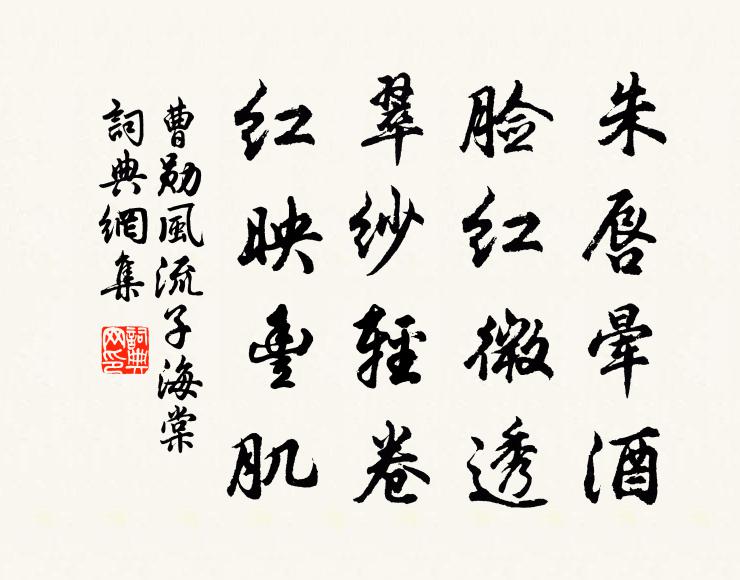 朱唇晕酒
脸红微透
翠纱轻卷
红映丰肌
曹勋風流子海棠
詞典網集
詞典网印